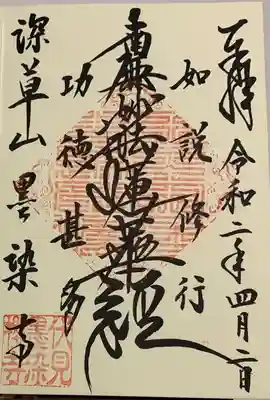 奉拝 令和二年四月二日
如説修行
南無妙法蓮華経
功徳甚多
深草山 墨染寺
伏見
墨染